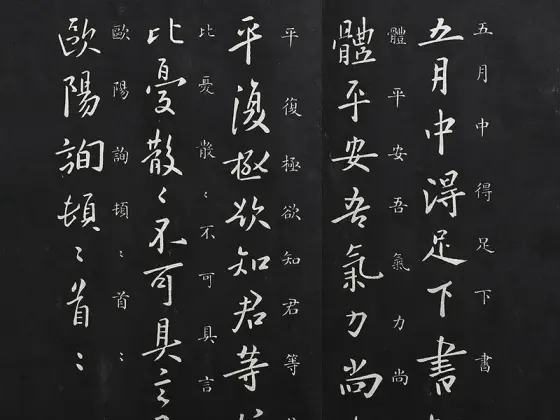 五月中得足下書
五月中得足下書
體平安吾氣力尚
體平安吾氣力尚
平復極欲知君等
平復極欲知君等
比憂散〻不可具言
比憂散〻不可具言
歐陽詢頓〻首〻
歐陽詢頓〻首〻